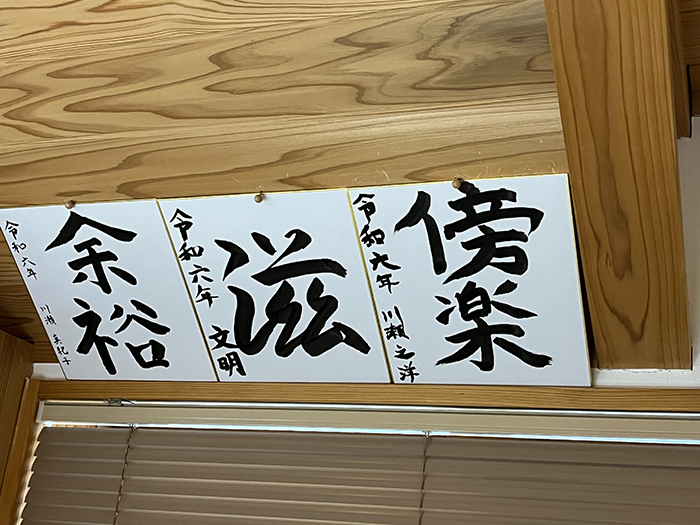 傍楽
令和六年 川瀬之洋
滋
令和六年 文明
余裕
令和六年 川瀬 美紀子